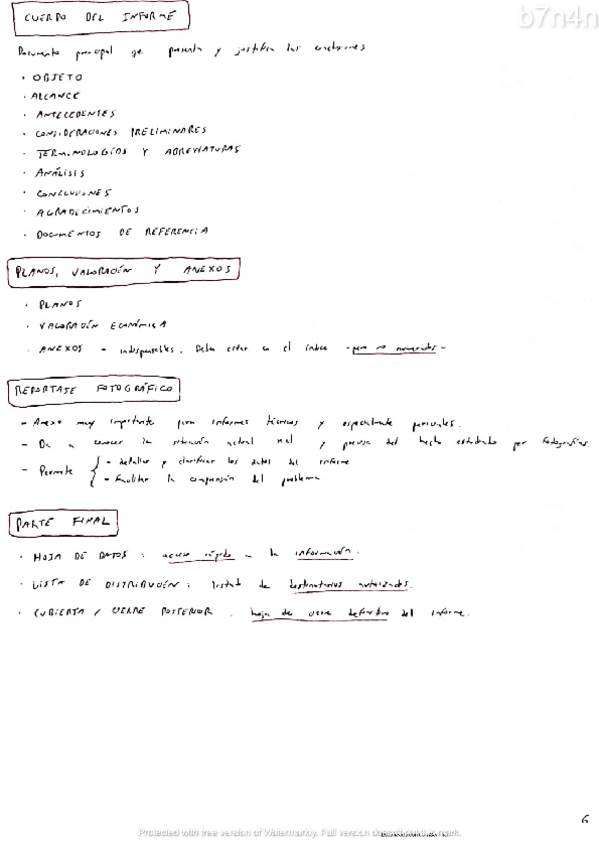 b7n4n
CUERPO DEL INFORME
Documento principal que presenta y justifica las conclusiones
· OBJETO
· ALCANCE
· ANTECEDENTES
· CONSIDERACIONES PRELIMINARES
· TERMINOLOGÍAS Y ABREVIATURAS
· ANÁLISIS
· CONCLUSIONES
· AGRADECIMIENTOS
· DOCUMENTOS DE REFERENCIA
PLANOS, VALORACIÓN Y ANEXOS
· PLANOS
· VALORACIÓN ECONÓMICA
· ANEXOS - indispensables. Deben estar en el índice -pero no numerados-
REPORTAJE FOTOGRÁFICO
- Anexo muy importante para informes técnicos y especialmente periciales.
- Da a conocer la situación actual real y precisa del hecho estudiado por fotografías.
- Permite { - detallar y clarificar los datos del informe
- facilitar la comprensión del problema
PARTE FINAL
· HOJA DE DATOS : acceso rápido a la información.
· LISTA DE DISTRIBUCIÓN : listado de destinatarios autorizados.
· CUBIERTA / CIERRE POSTERIOR : hoja de cierre definitivo del informe.
6
Protected with free version of Watermarkly. Full version doesn't put this mark.